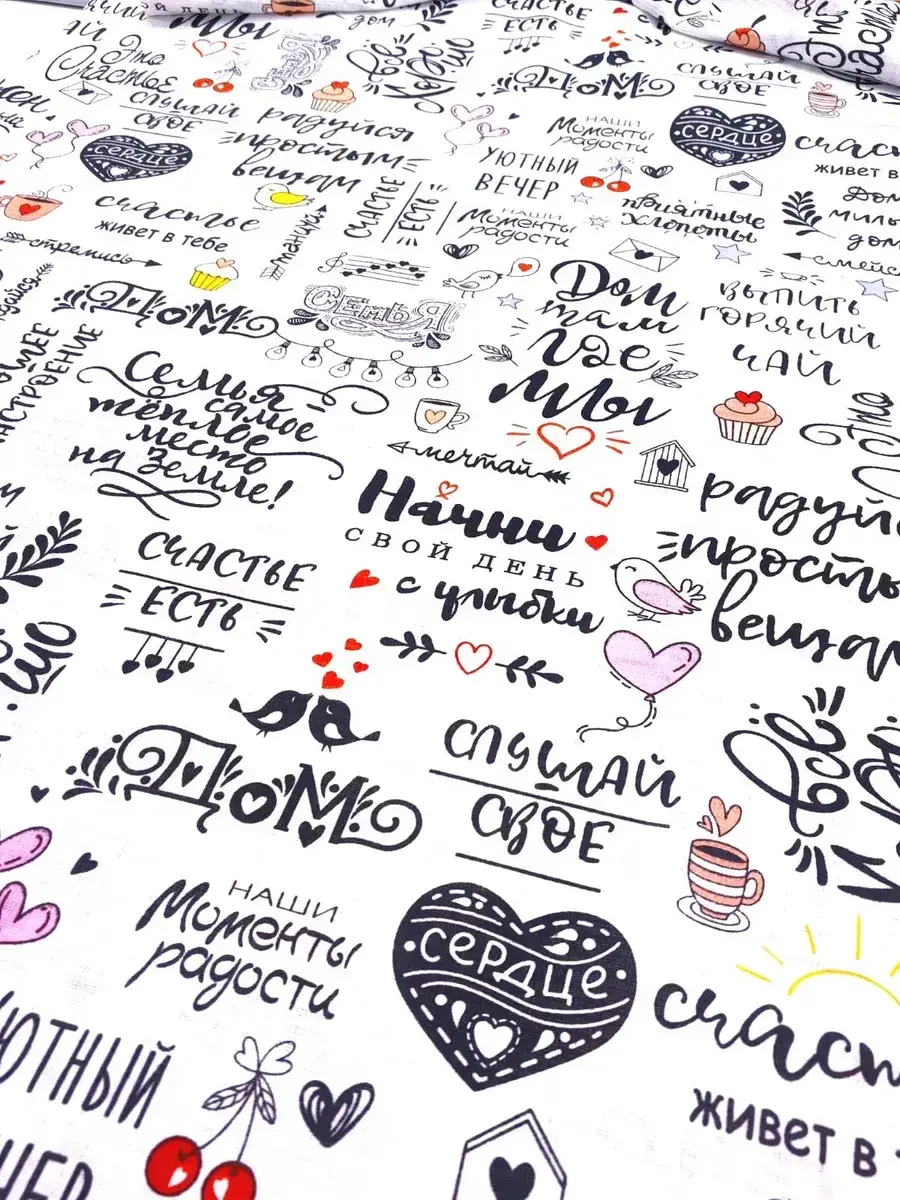 наши
Мы
дом
счастье
есть
Это
Счастье
Все
Дом
слушай
свое
слушай
свое
радуйся
простым
вещам
наши
Моменты
радости
сердце
сердце
уютный
вечер
счастье
есть
наши
Моменты
радости
приятные
хлопоты
счастье
живет в тебе
живет в
Дом
стремись
танцуй
смейся
Дом
Семья
Дом
там
где
Мы
выпить
горячий
чай
настроение
Семья -
самое
тёплое
место
на земле!
мечтай
Начни
свой день
с улыбки
радуйс
простым
вещам
счастье
есть
Дом
слушай
свое
наши
Моменты
радости
сердце
счаст
живет в
ютный
чер